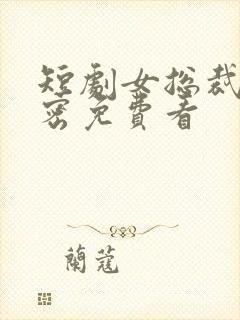 短劇女总裁
密免費看
蘭蔻